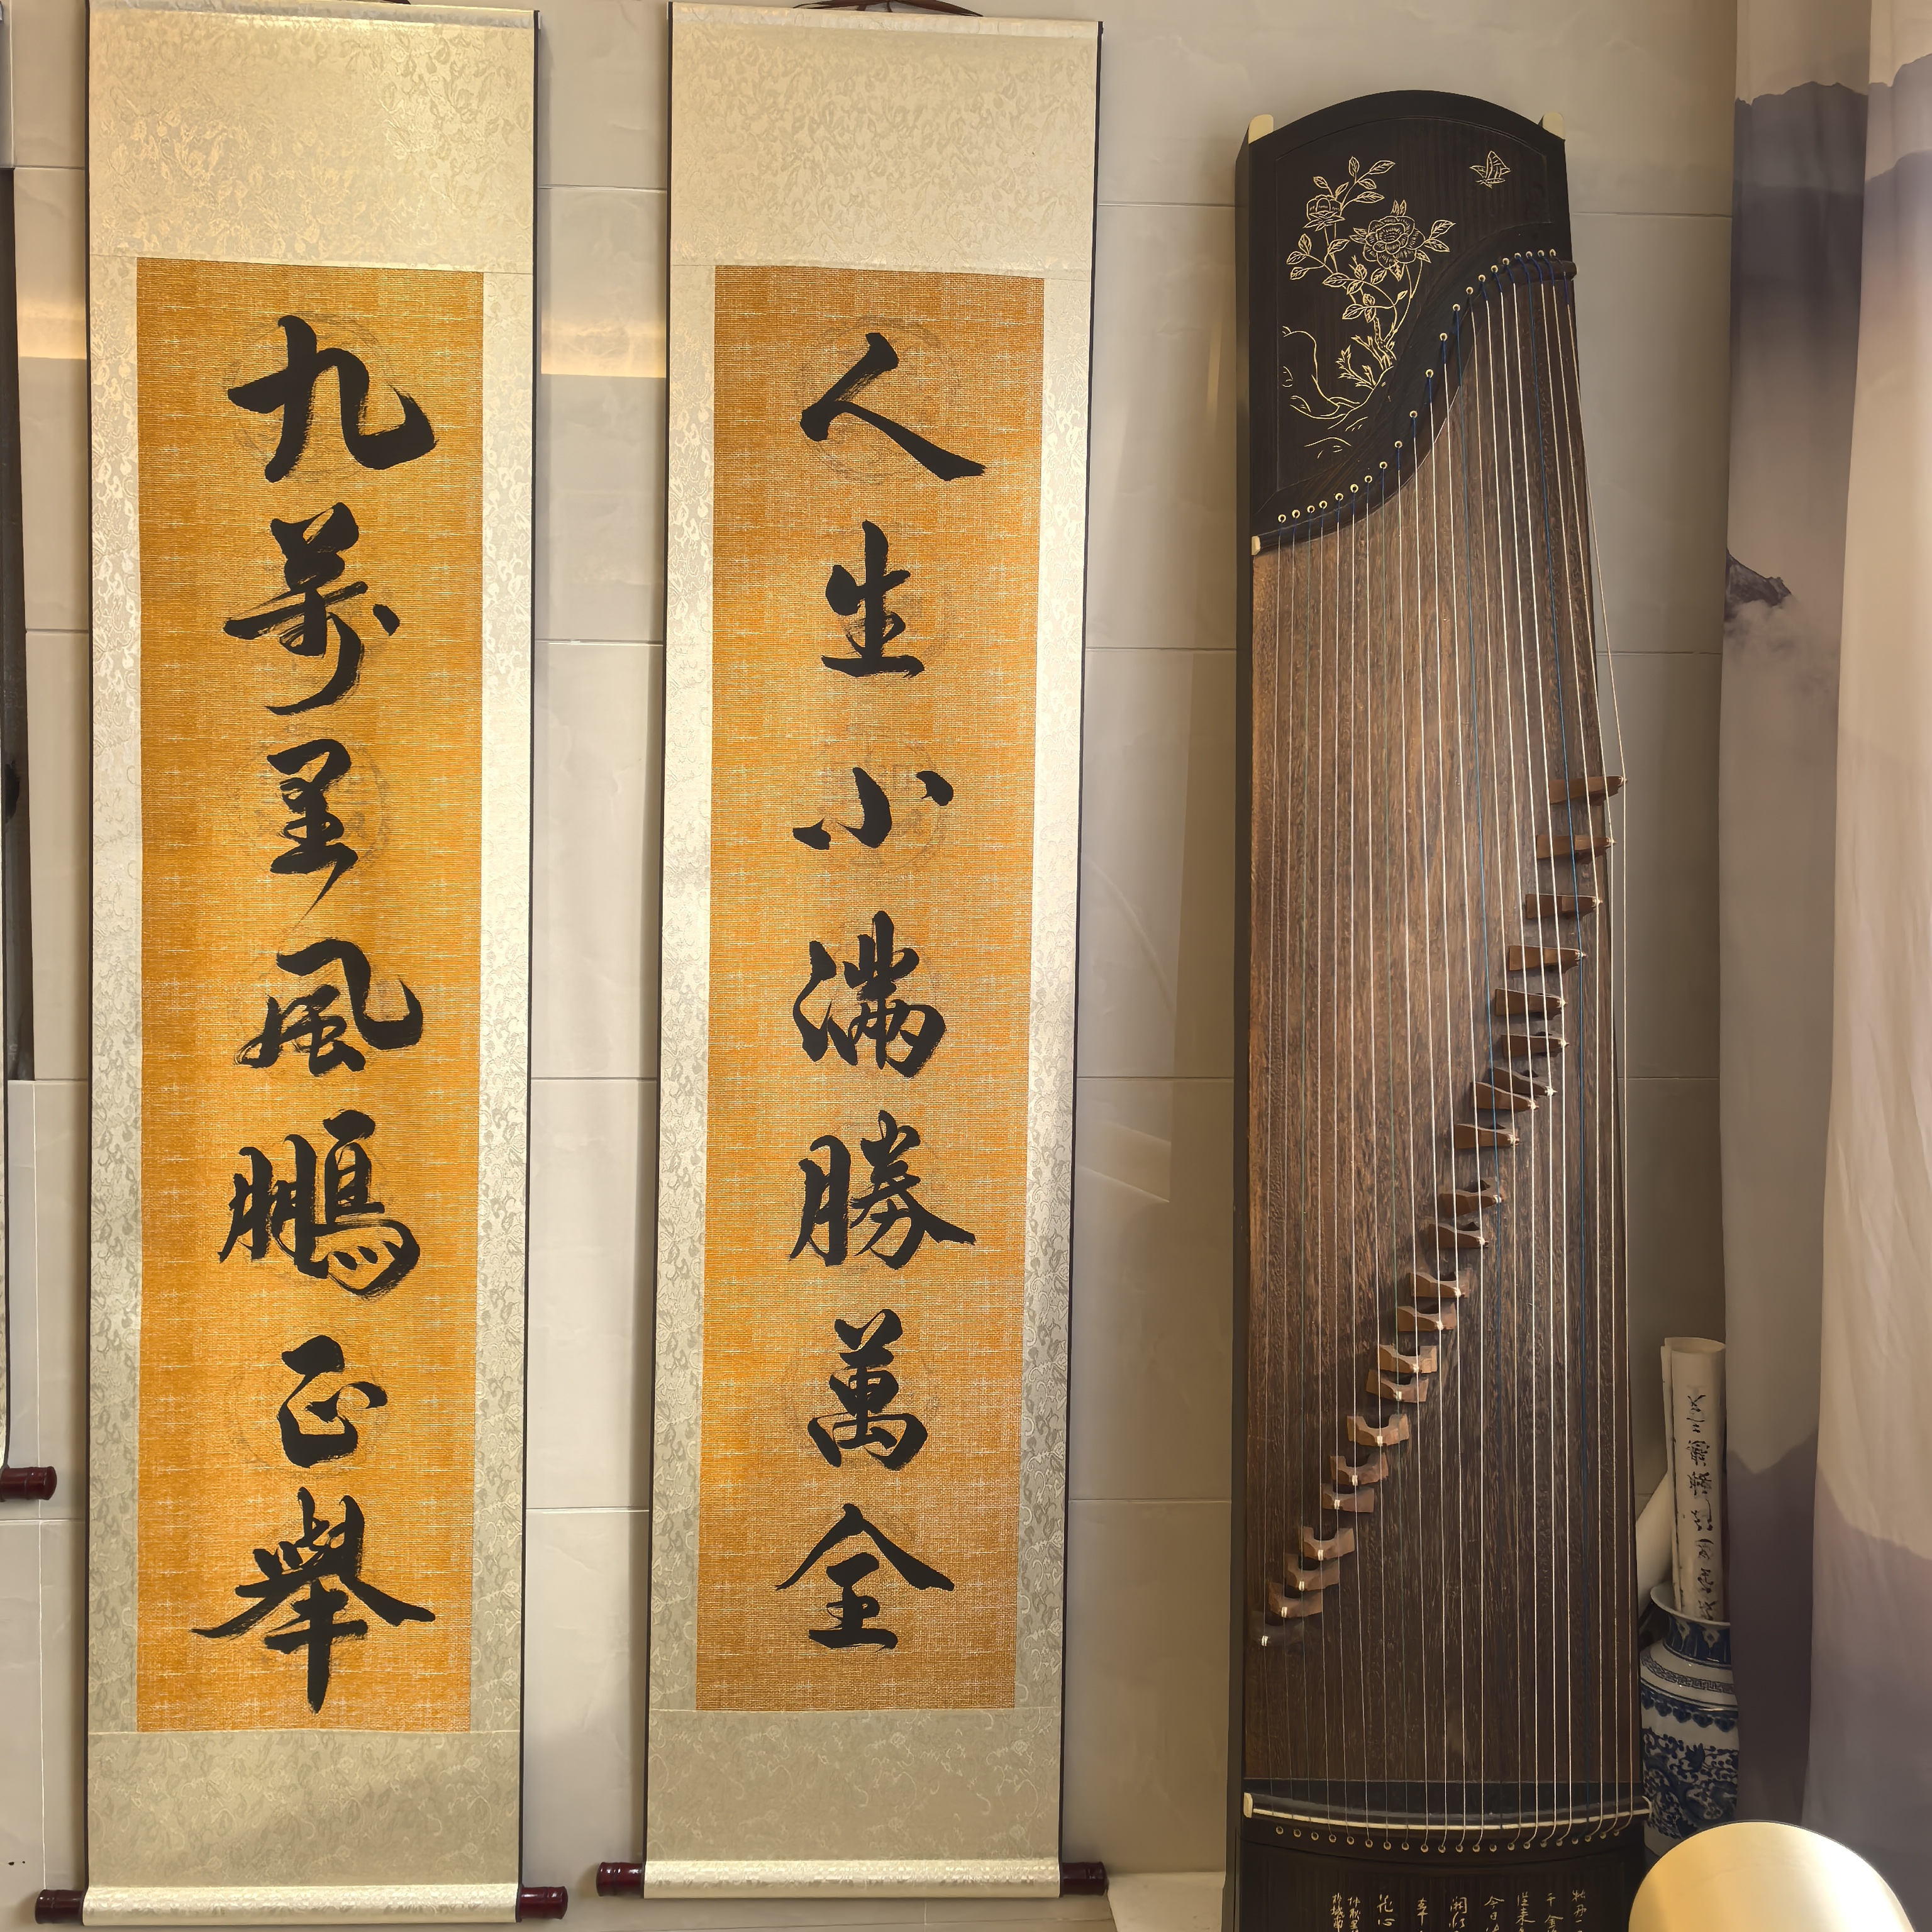 人生小滿勝萬全
九萬里風鵬正舉